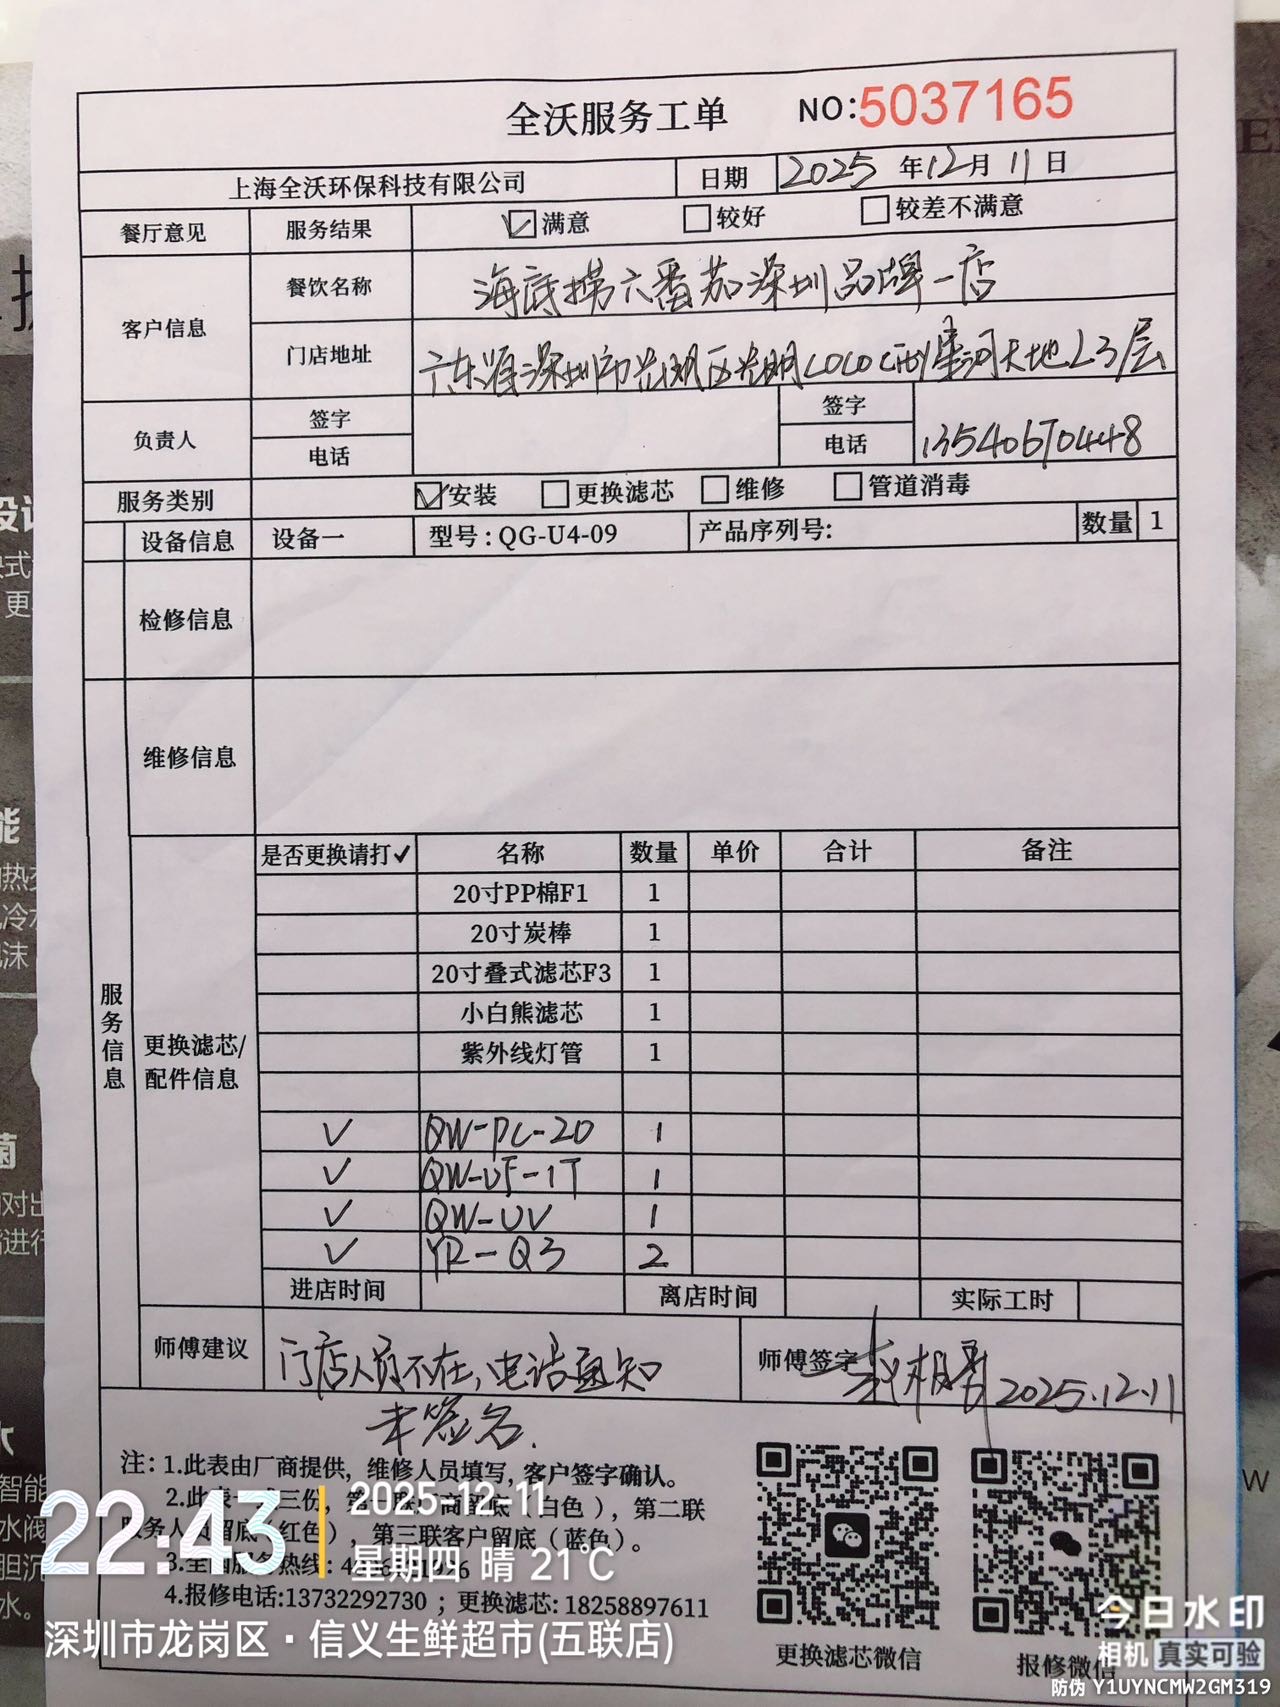 全沃服务工单 NO:5037165
上海全沃环保科技有限公司 日期 2025 年 12 月 11 日
餐厅意见 服务结果 ☑满意 □较好 □较差不满意
客户信息 餐饮名称 海底捞六番茄深圳品牌一店
门店地址 广东省深圳市光明区光明LOCO City 天地L3层
负责人 签字 签字
电话 电话 13540670448
服务类别 ☑安装 □更换滤芯 □维修 □管道消毒
设备信息 设备一 型号:QG-U4-09 产品序列号: 数量 1
检修信息
维修信息
服务信息
更换滤芯/
配件信息
是否更换请打✓ 名称 数量 单价 合计 备注
20寸PP棉F1 1
20寸炭棒 1
20寸叠式滤芯F3 1
小白熊滤芯 1
紫外线灯管 1
✓ QW-PC-20 1
✓ QW-UF-1T 1
✓ QW-UV 1
✓ YR-Q3 2
进店时间 离店时间 实际工时
师傅建议 门店人员不在,电话通知 师傅签字 2025.12.11
未签名.
注: 1.此表由厂商提供, 维修人员填写, 客户签字确认。
2.此表一式三份, 第一联厂商留底（白色）, 第二联
服务人员留底（红色）, 第三联客户留底（蓝色）。
3.全国服务热线:
4.报修电话:13732292730 ; 更换滤芯: 18258897611
更换滤芯微信 报修微信
22:43
2025-12-11
星期四 晴 21℃
深圳市龙岗区·信义生鲜超市(五联店)
今日水印
相机 真实可验
防伪 Y1UYNCMW2GM319